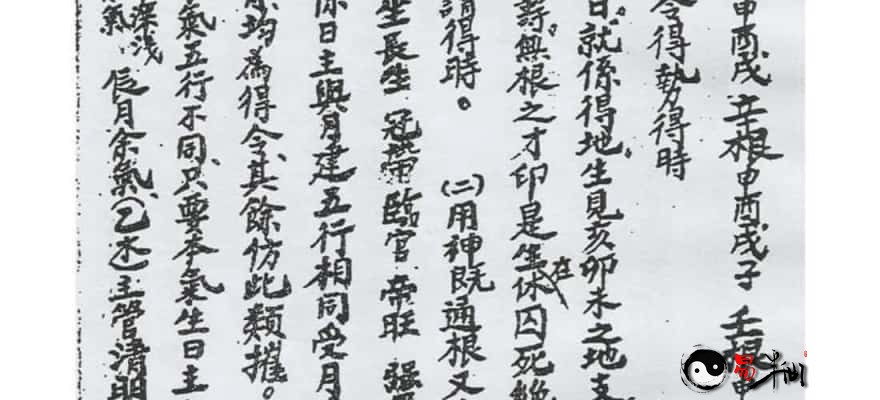 申酉戌 辛根申酉戌子 壬根申
令得勢得時
日。就係得地生見亥卯未之地支
壽。無根之才印是生在休囚死絕
謂得時。 (二)用神既通根又
坐長生 冠帶臨官 帝旺 强
係日主與月建五行相同受月
均為得令、其餘仿此類摧。
氣五行不同、只要本氣生日主
深浅
氣 辰月余氣、(乙木)主管清明
易半仙